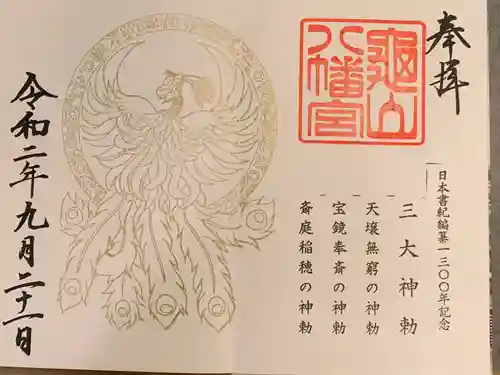 奉拝
亀山八幡宮
日本書紀編纂一三〇〇年記念
一三大神勅
一天壌無窮の神勅
一宝鏡奉斎の神勅
一斎庭稲穂の神勅
令和二年九月二十一日